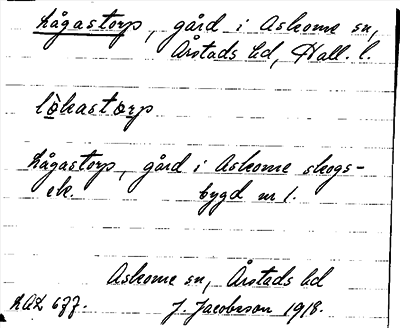 Lågastorp, gård i Askome sn,
Årstads hd, Hall. l.
lò̱kasto̱rp
Lågastorp, gård i Askome skogs-
bygd nr 1.
Askome sn, Årstads hd
J. Jacobsson 1918.